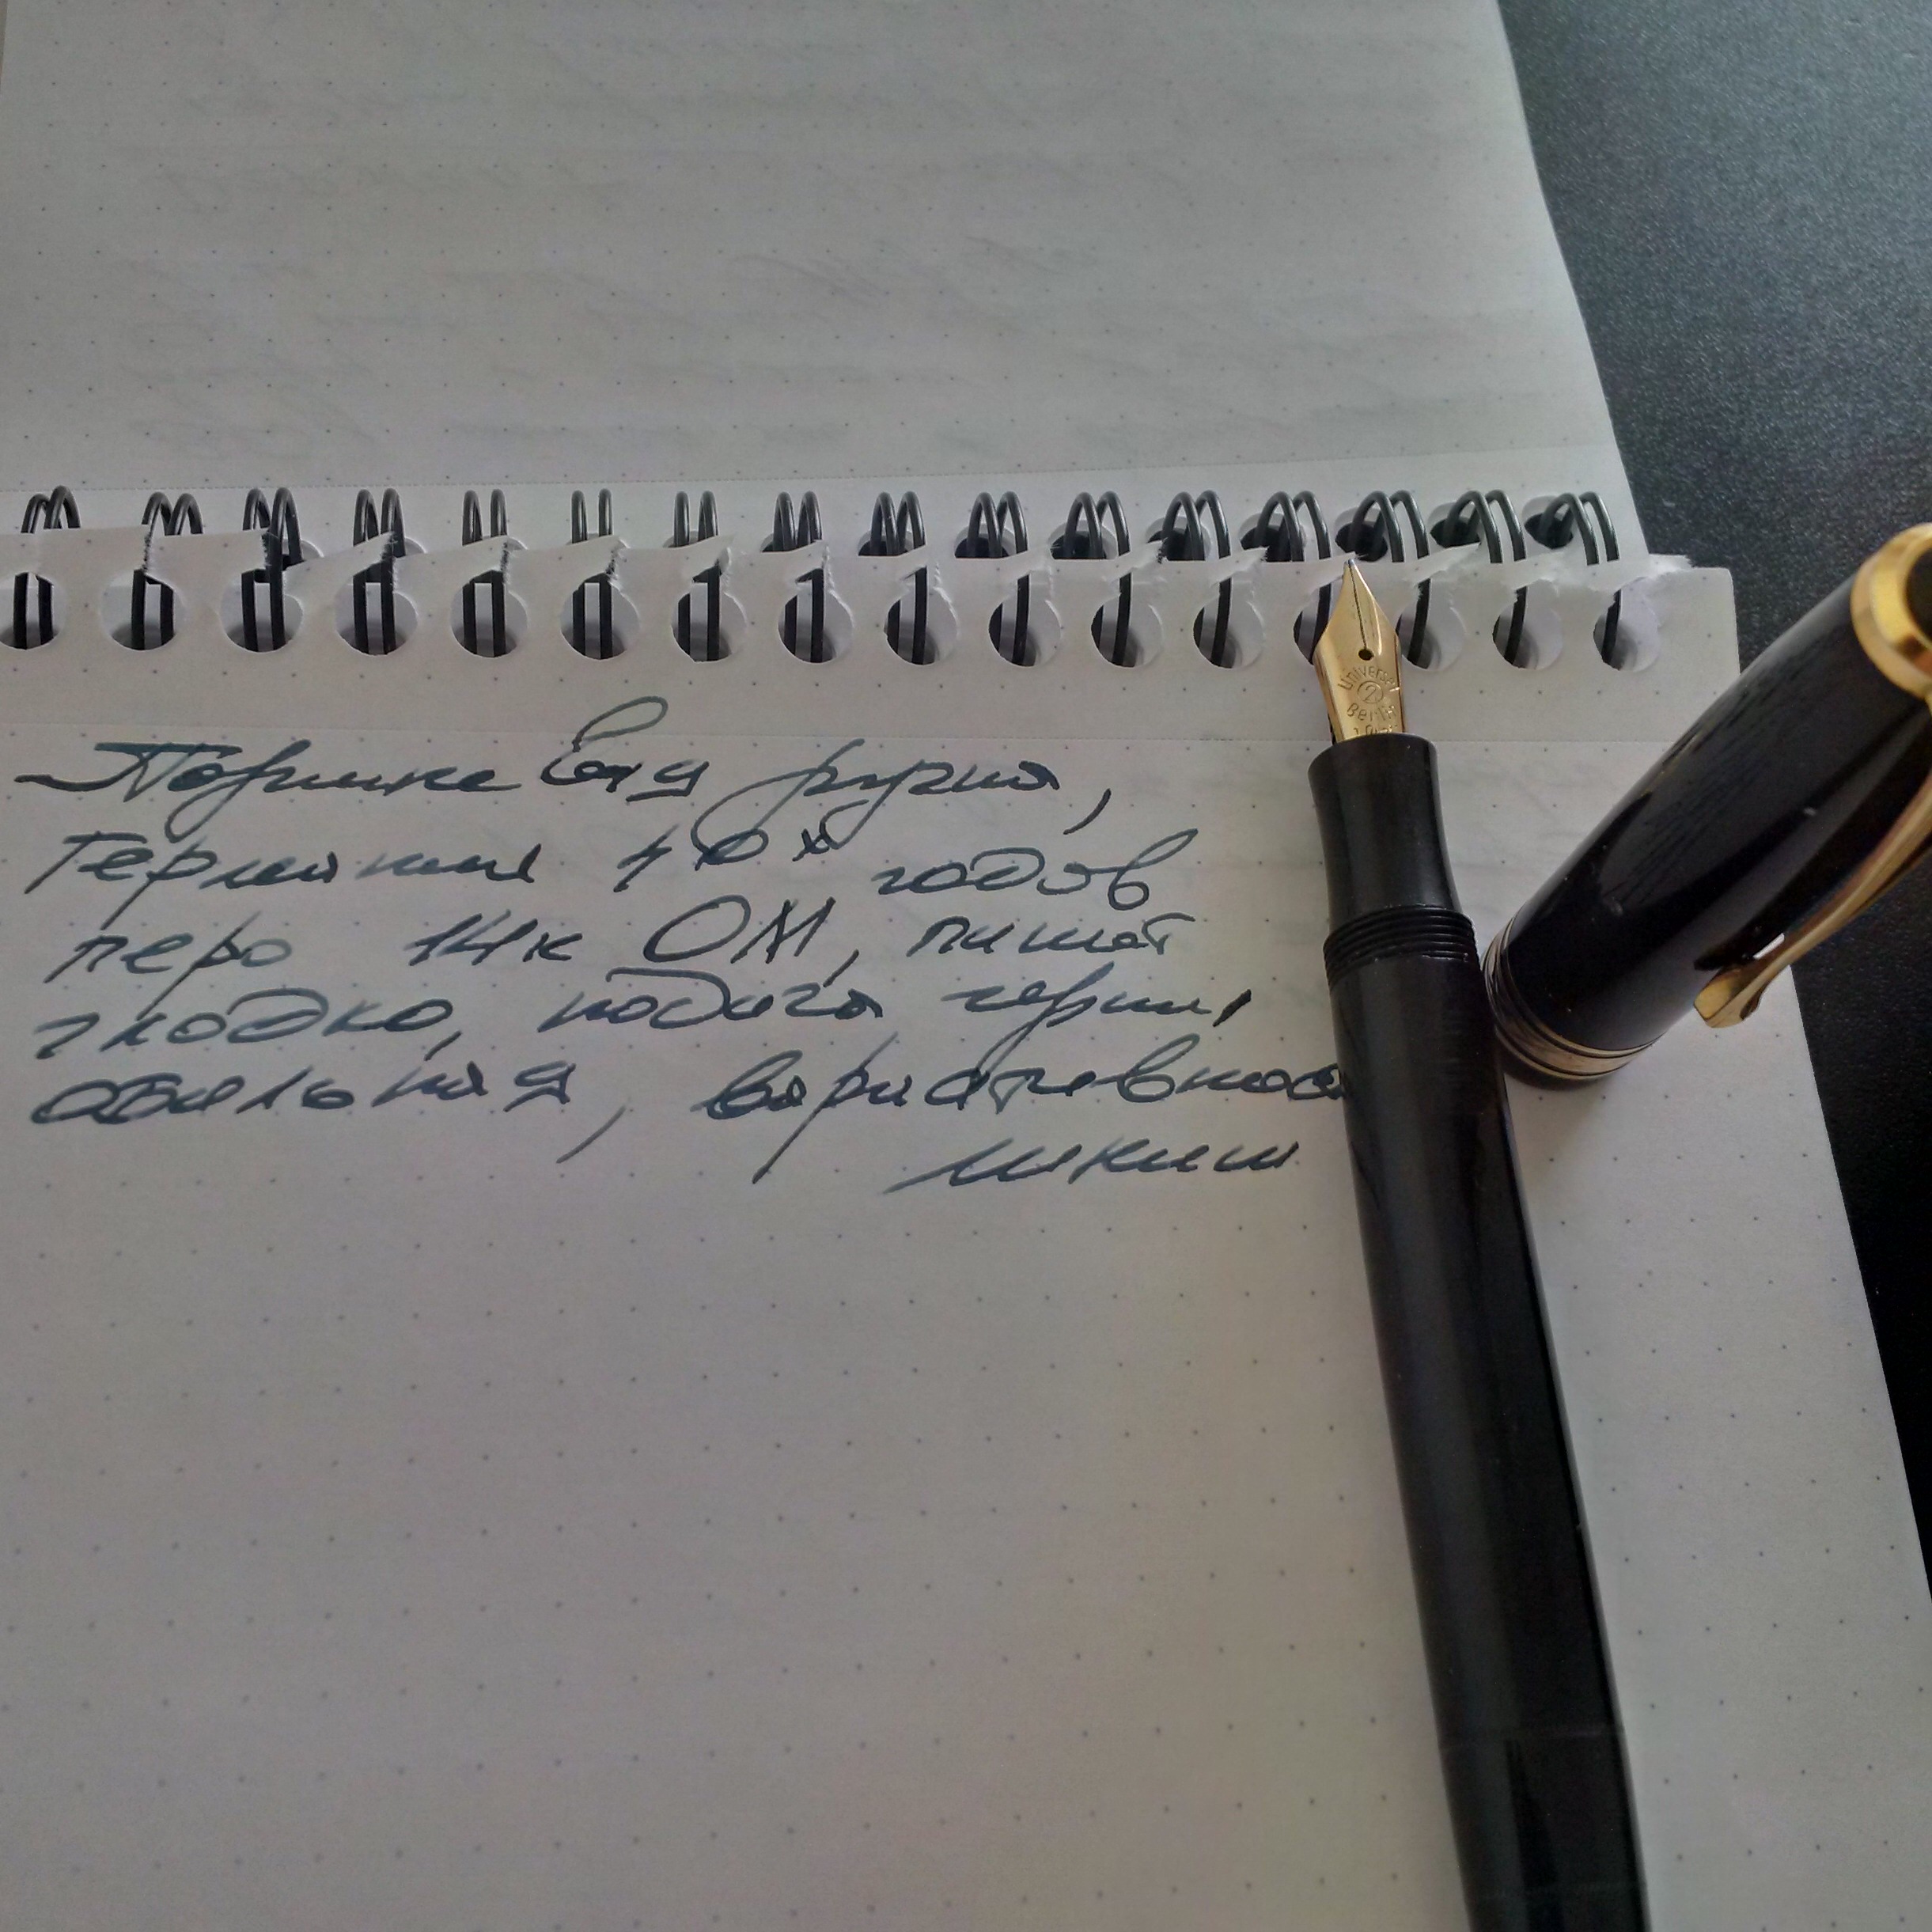 Поршневая ручка,
Германия 40х годов
перо 14к ОМ, пишет
гладко, подача чернил
обильная, вариативнос
линии
Univers
2
Berlin